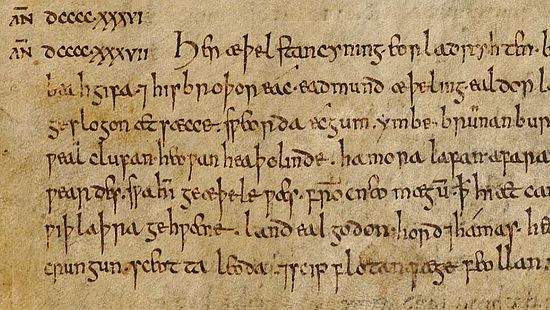 AN̄ dcccc.xxxvi
AN̄ dcccc.xxxvii Her æþelstan cyning. eorla dryhten. b
beahgifa. ⁊ his broþor eac. eadmund æþeling. ealdor la
geslogon æt sæcce. sƿeorda ecgum. ymbe. brunanbur
ƿeal clufan. heoƿan heaþolinde. hamora lafan. afara
ƿeardes. sƿa hī geæþele ƿæs. frō cneo mægū. ꝥ hi æt ca
ƿiþ laþra gehƿæne. land ealgodon. hord ⁊ hamas. he
crungun. sceotta leoda. ⁊ scip flotan. fæge feollan.